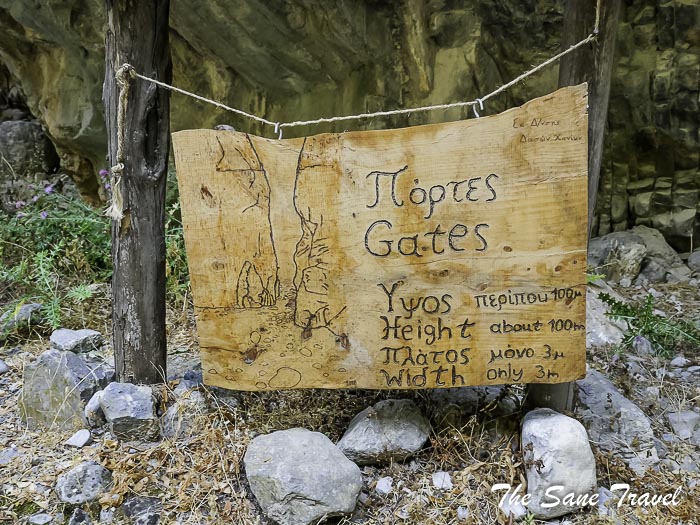 Πόρτες
Gates
Υψος περίπου 100μ
Height about 100m
Πλάτος μόνο 3μ
Width only 3m
The Sane Travel